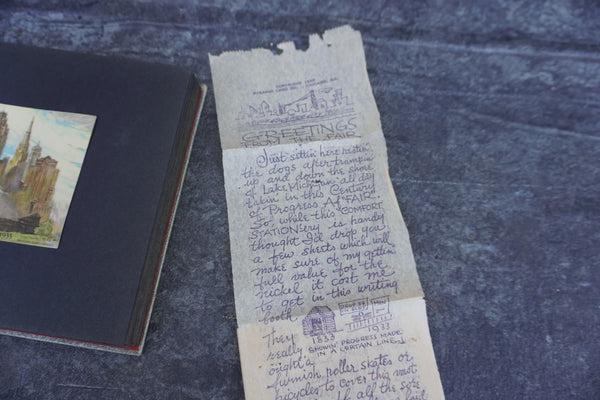 COPYRIGHT 1933
GREETINGS
FROM THE FAIR
Just sittin' here restin'
the dogs after trampin'
up and down the shore
of Lake Michigan all day
takin' in this Century
of Progress Af"FAIR".
So while this "COMFORT
STATION"ery is handy
thought I'd drop you
a few sheets which will
make sure of my gettin'
full value for the
nickel it cost me
to get in this writing
booth.
They
really
ought'a
1833
1933
SHOWIN' PROGRESS MADE
IN A CERTAIN LINE
furnish roller skates or
bicycles to cover this vast
all the sore
1933